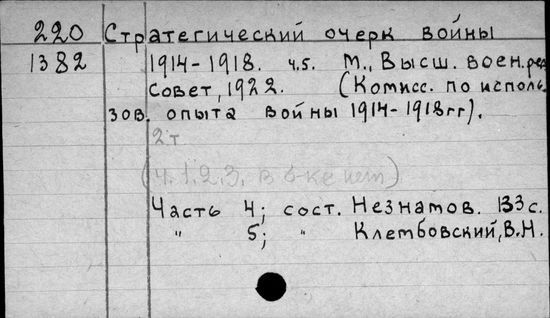 220 Стратегический очерк войны
1382 1914-1918. ч.5. М., Высш. воен. ред.
Совет, 1922. (Комисс. по исполь-
зов. опыта войны 1914-1918гг).
2т
(ч. 1.2.3. в б-ке нет)
Часть 4; сост. Незнамов. 133с.
" 5; " Клембовский, В.Н.